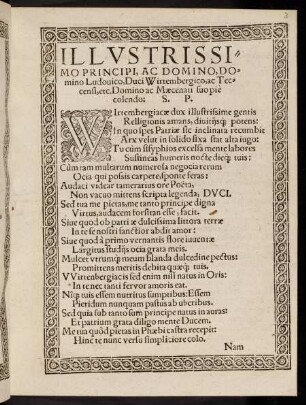 ILLVSTRISSI-
MO PRINCIPI, AC DOMINO, DO-
mino Ludouico, Duci Wirtembergico, ac Tec-
censi, etc. Domino ac Mœcenati suo piè
colendo: S. P.
WIrtembergiacæ dux illustrissime gentis
Relligionis amans, diuitijsq; potens:
In quo spes Patriæ sic inclinata recumbit
Arx velut in solido fixa stat alta iugo:
Tu cùm sisyphios excelsa mente labores
Sustineas humeris nocte dieq; tuis:
Cùm iam multarum numerosa negocia rerum
Ocia qui possis carpere ponè feras:
Audaci videar temerarius ore Poëta,
Non vacuo mittens scripta legenda, DVCI.
Sed tua me pietas, me tanto principe digna
Virtus, audacem forsitan esse, facit.
Siue quod ob patriæ dulcissima littora terræ
In te se nostri sanctior abdit amor:
Siue quòd à primo vernantis flore iuuentæ
Largitus studijs ocia grata meis.
Mulcet vtrumq; meum blanda dulcedine pectus:
Promittens meritis debita quæq; tuis.
VVirtenbergiacis sed enim nil natus in Oris:
In te nec tanti feruor amoris eat.
Niq; tuis essem nutritus sumptibus: Essem
Pieridum nunquam pastus ab vberibus.
Sed quia sub tanto sum principe natus in auras:
Et patrium grata diligo mente Ducem.
Me tua quòd pietas in Phœbi castra recepit:
Hinc te nunc versu simplitiore colo.
Nam